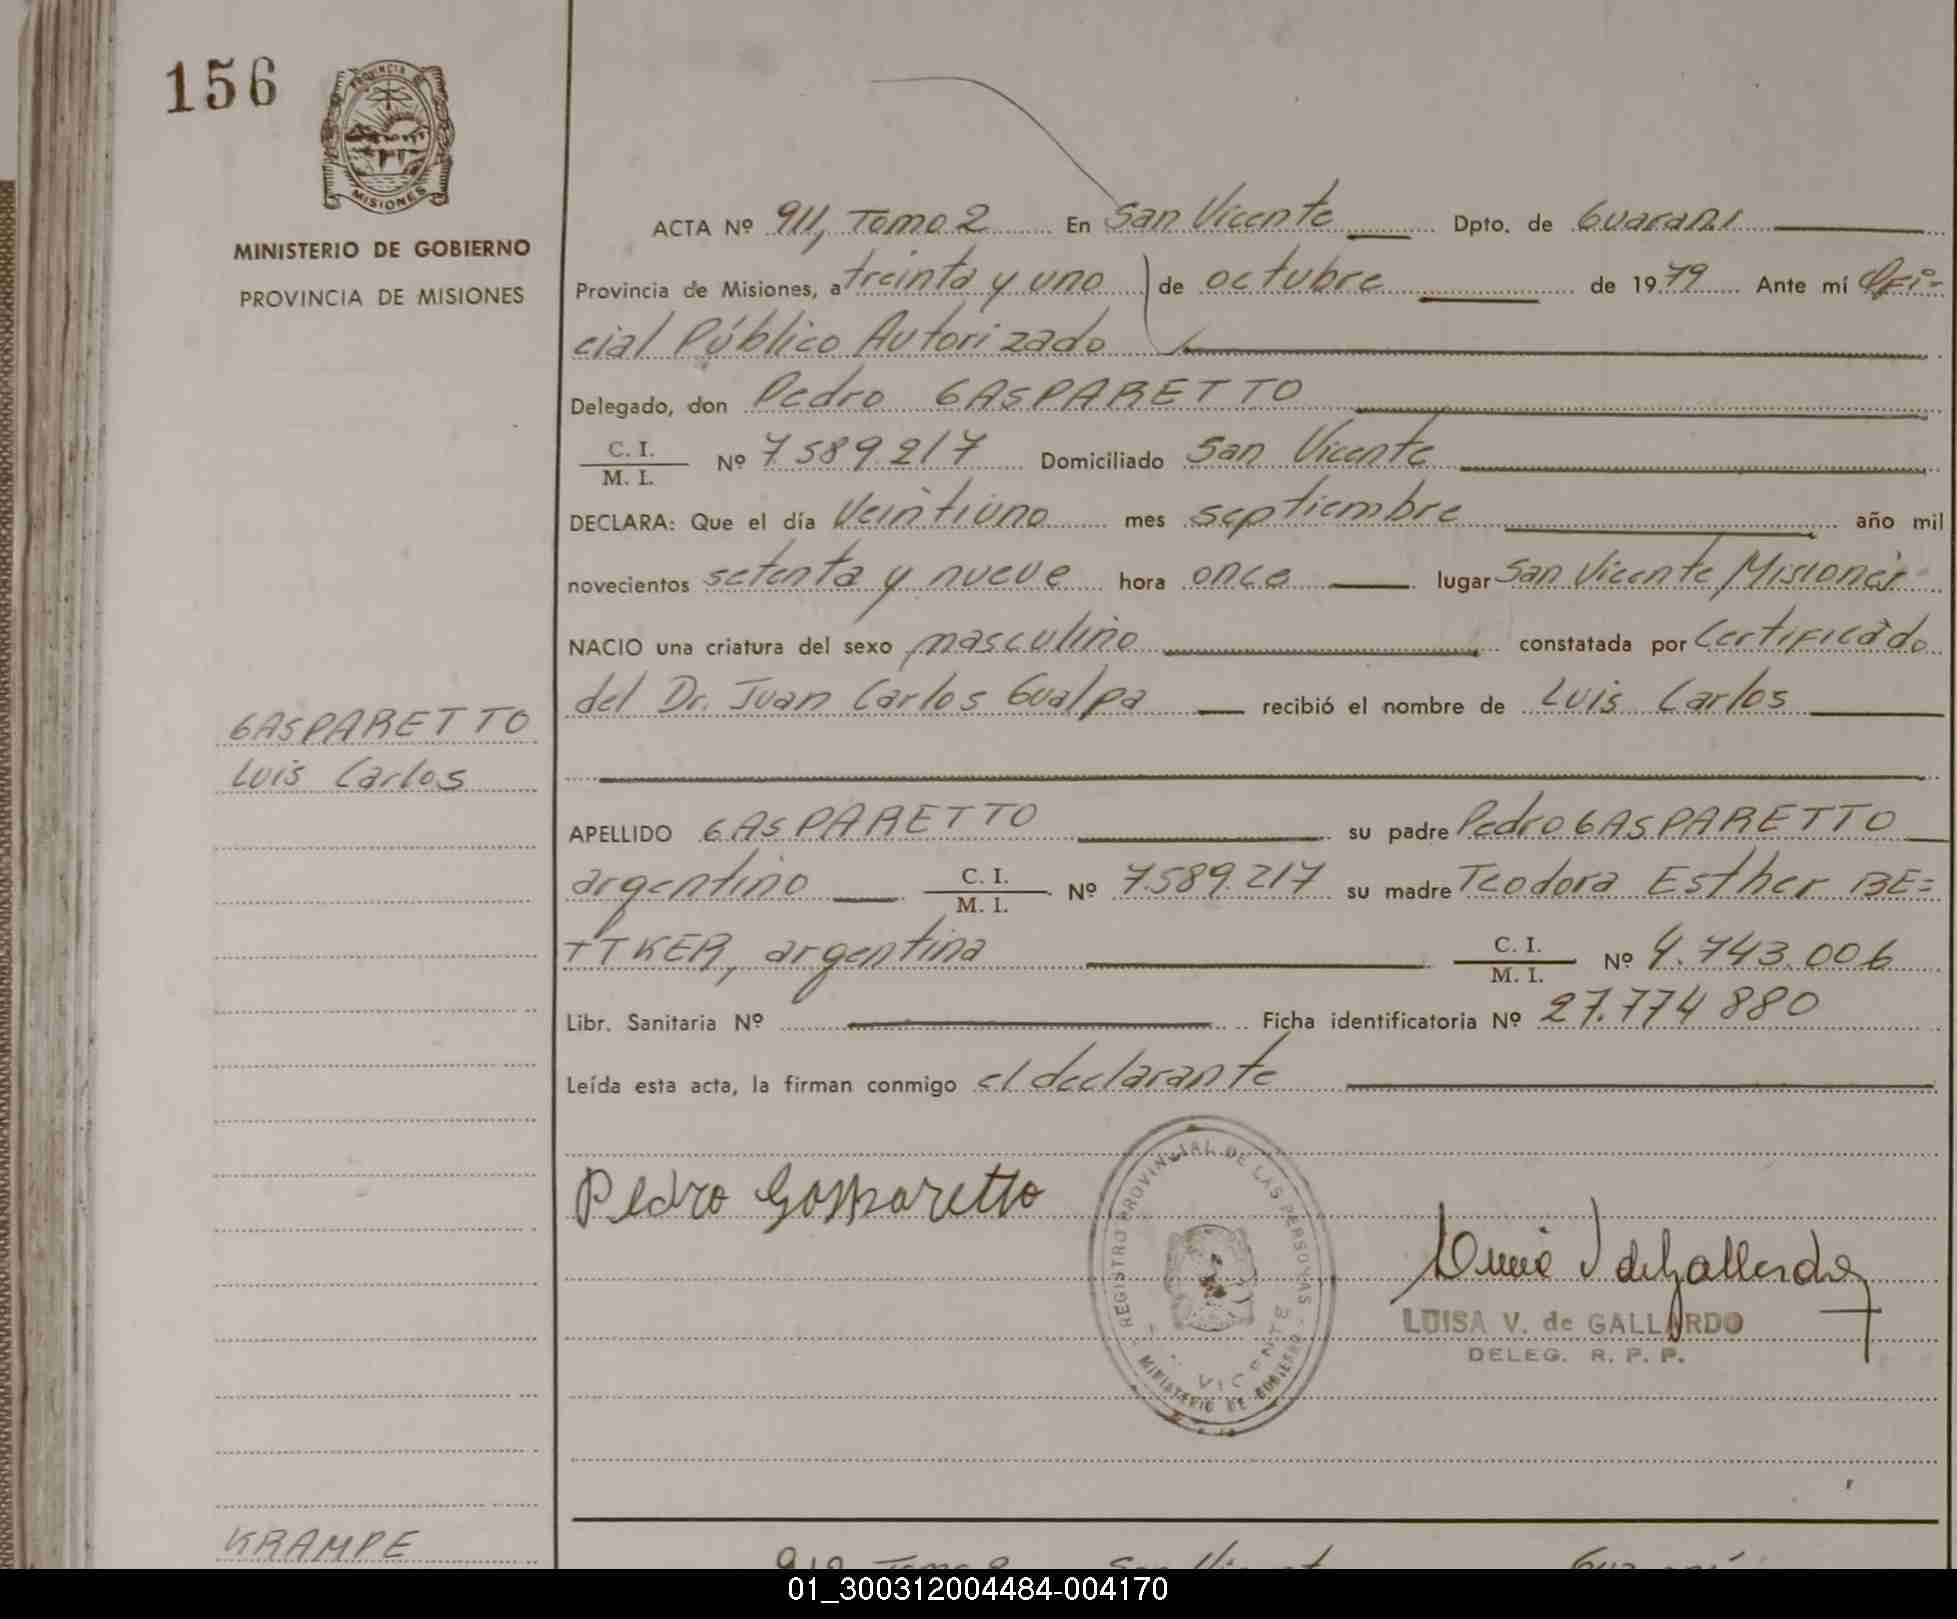 156
PROVINCIA DE
MISIONES
MINISTERIO DE GOBIERNO
PROVINCIA DE MISIONES
ACTA Nº 911, Tomo 2 En San Vicente Dpto. de Guaraní
Provincia de Misiones, a treinta y uno de octubre de 1979 Ante mí Ofi=
cial Público Autorizado
Delegado, don Pedro GASPARETTO
C. I.
M. I. Nº 7.589.217 Domiciliado San Vicente
DECLARA: Que el día Veintiuno mes septiembre año mil
novecientos setenta y nueve hora once lugar San Vicente Misiones
NACIO una criatura del sexo masculino constatada por Certificado
del Dr. Juan Carlos Gualpa recibió el nombre de Luis Carlos
GASPARETTO
Luis Carlos
APELLIDO GASPARETTO su padre Pedro GASPARETTO
argentino C. I.
M. I. Nº 7.589.217 su madre Teodora Esther BE=
TTKER, argentina C. I.
M. I. Nº 4.743.006
Libr. Sanitaria Nº Ficha identificatoria Nº 27.774 880
Leída esta acta, la firman conmigo el declarante
Pedro Gasparetto
REGISTRO PROVINCIAL DE LAS PERSONAS - MINISTERIO DE GOBIERNO -
VICENTE
LUISA V. de GALLARDO
DELEG. R. P. P.
KRAMPE
01_300312004484-004170